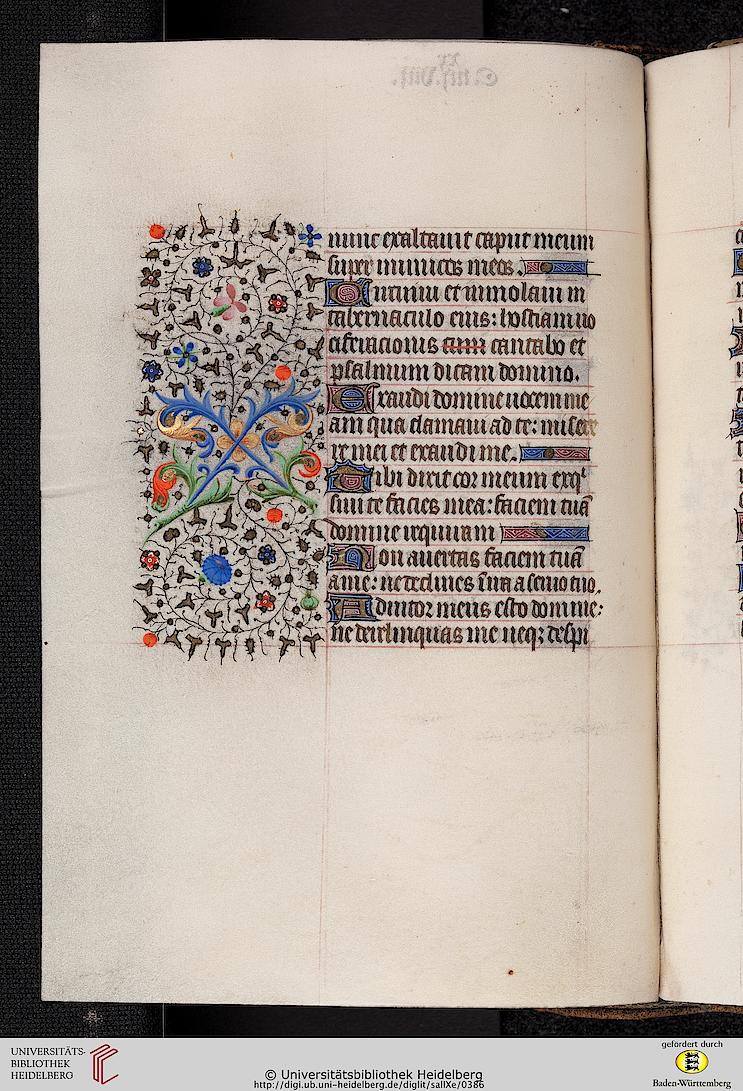 nunc exaltauit caput meum
super inimicos meos.
Circuiui et immolaui in
tabernaculo eius: hostiam uo
ciferacionis eum cantabo et
psalmum dicam domino.
Exaudi domine uocem me
am qua clamaui ad te: misere
re mei et exaudi me.
Tibi dixit cor meum exq
siuit te facies mea: faciem tuā
domine requiram
Non auertas faciem tuā
a me: ne declines in ira a seruo tuo.
Adiutor meus esto domine:
ne derelinquas me neqz despi
UNIVERSITÄTS-
BIBLIOTHEK
HEIDELBERG
© Universitätsbibliothek Heidelberg
http://digi.ub.uni-heidelberg.de/diglit/sallXe/0386
gefördert durch
Baden-Württemberg